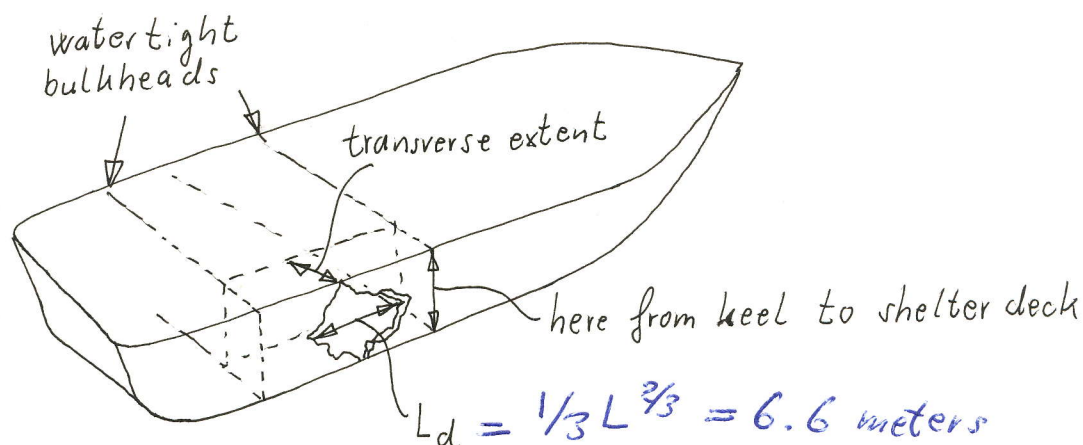 watertight
bulkheads
transverse extent
here from keel to shelter deck
Ld = 1/3 L^2/3 = 6.6 meters